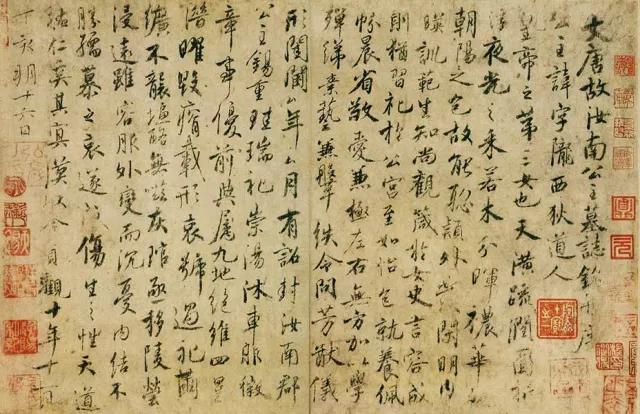 大唐故汝南公主墓誌銘并序
公主諱字隴西狄道人
皇帝之第三女也天潢疏潤圓折
浮夜光之采若木分暉穠華照
朝陽之色故能聰穎外發閑明內
暎訓範生知尚觀箴於女史言容成
則猶習礼於公宮至如怡色就養佩
帉晨省敬愛兼極左右無方加以學
殫綈素藝兼鞶紩令問芳猷儀
形閨閫厶年厶月有詔封汝南郡
公主錫重珪瑞礼崇湯沐車服徽
章事優前典屬九地絕維四星
潛曜毀瘠載形哀號過礼繭
纊不襲塩酪無嗞灰琯亟移陵塋
浸遠雖容服外變而沉憂內結不
勝孺慕之哀遂以傷生之性天道
祐仁奚其冥漠以今貞觀十年十一月
丁亥朔十六日